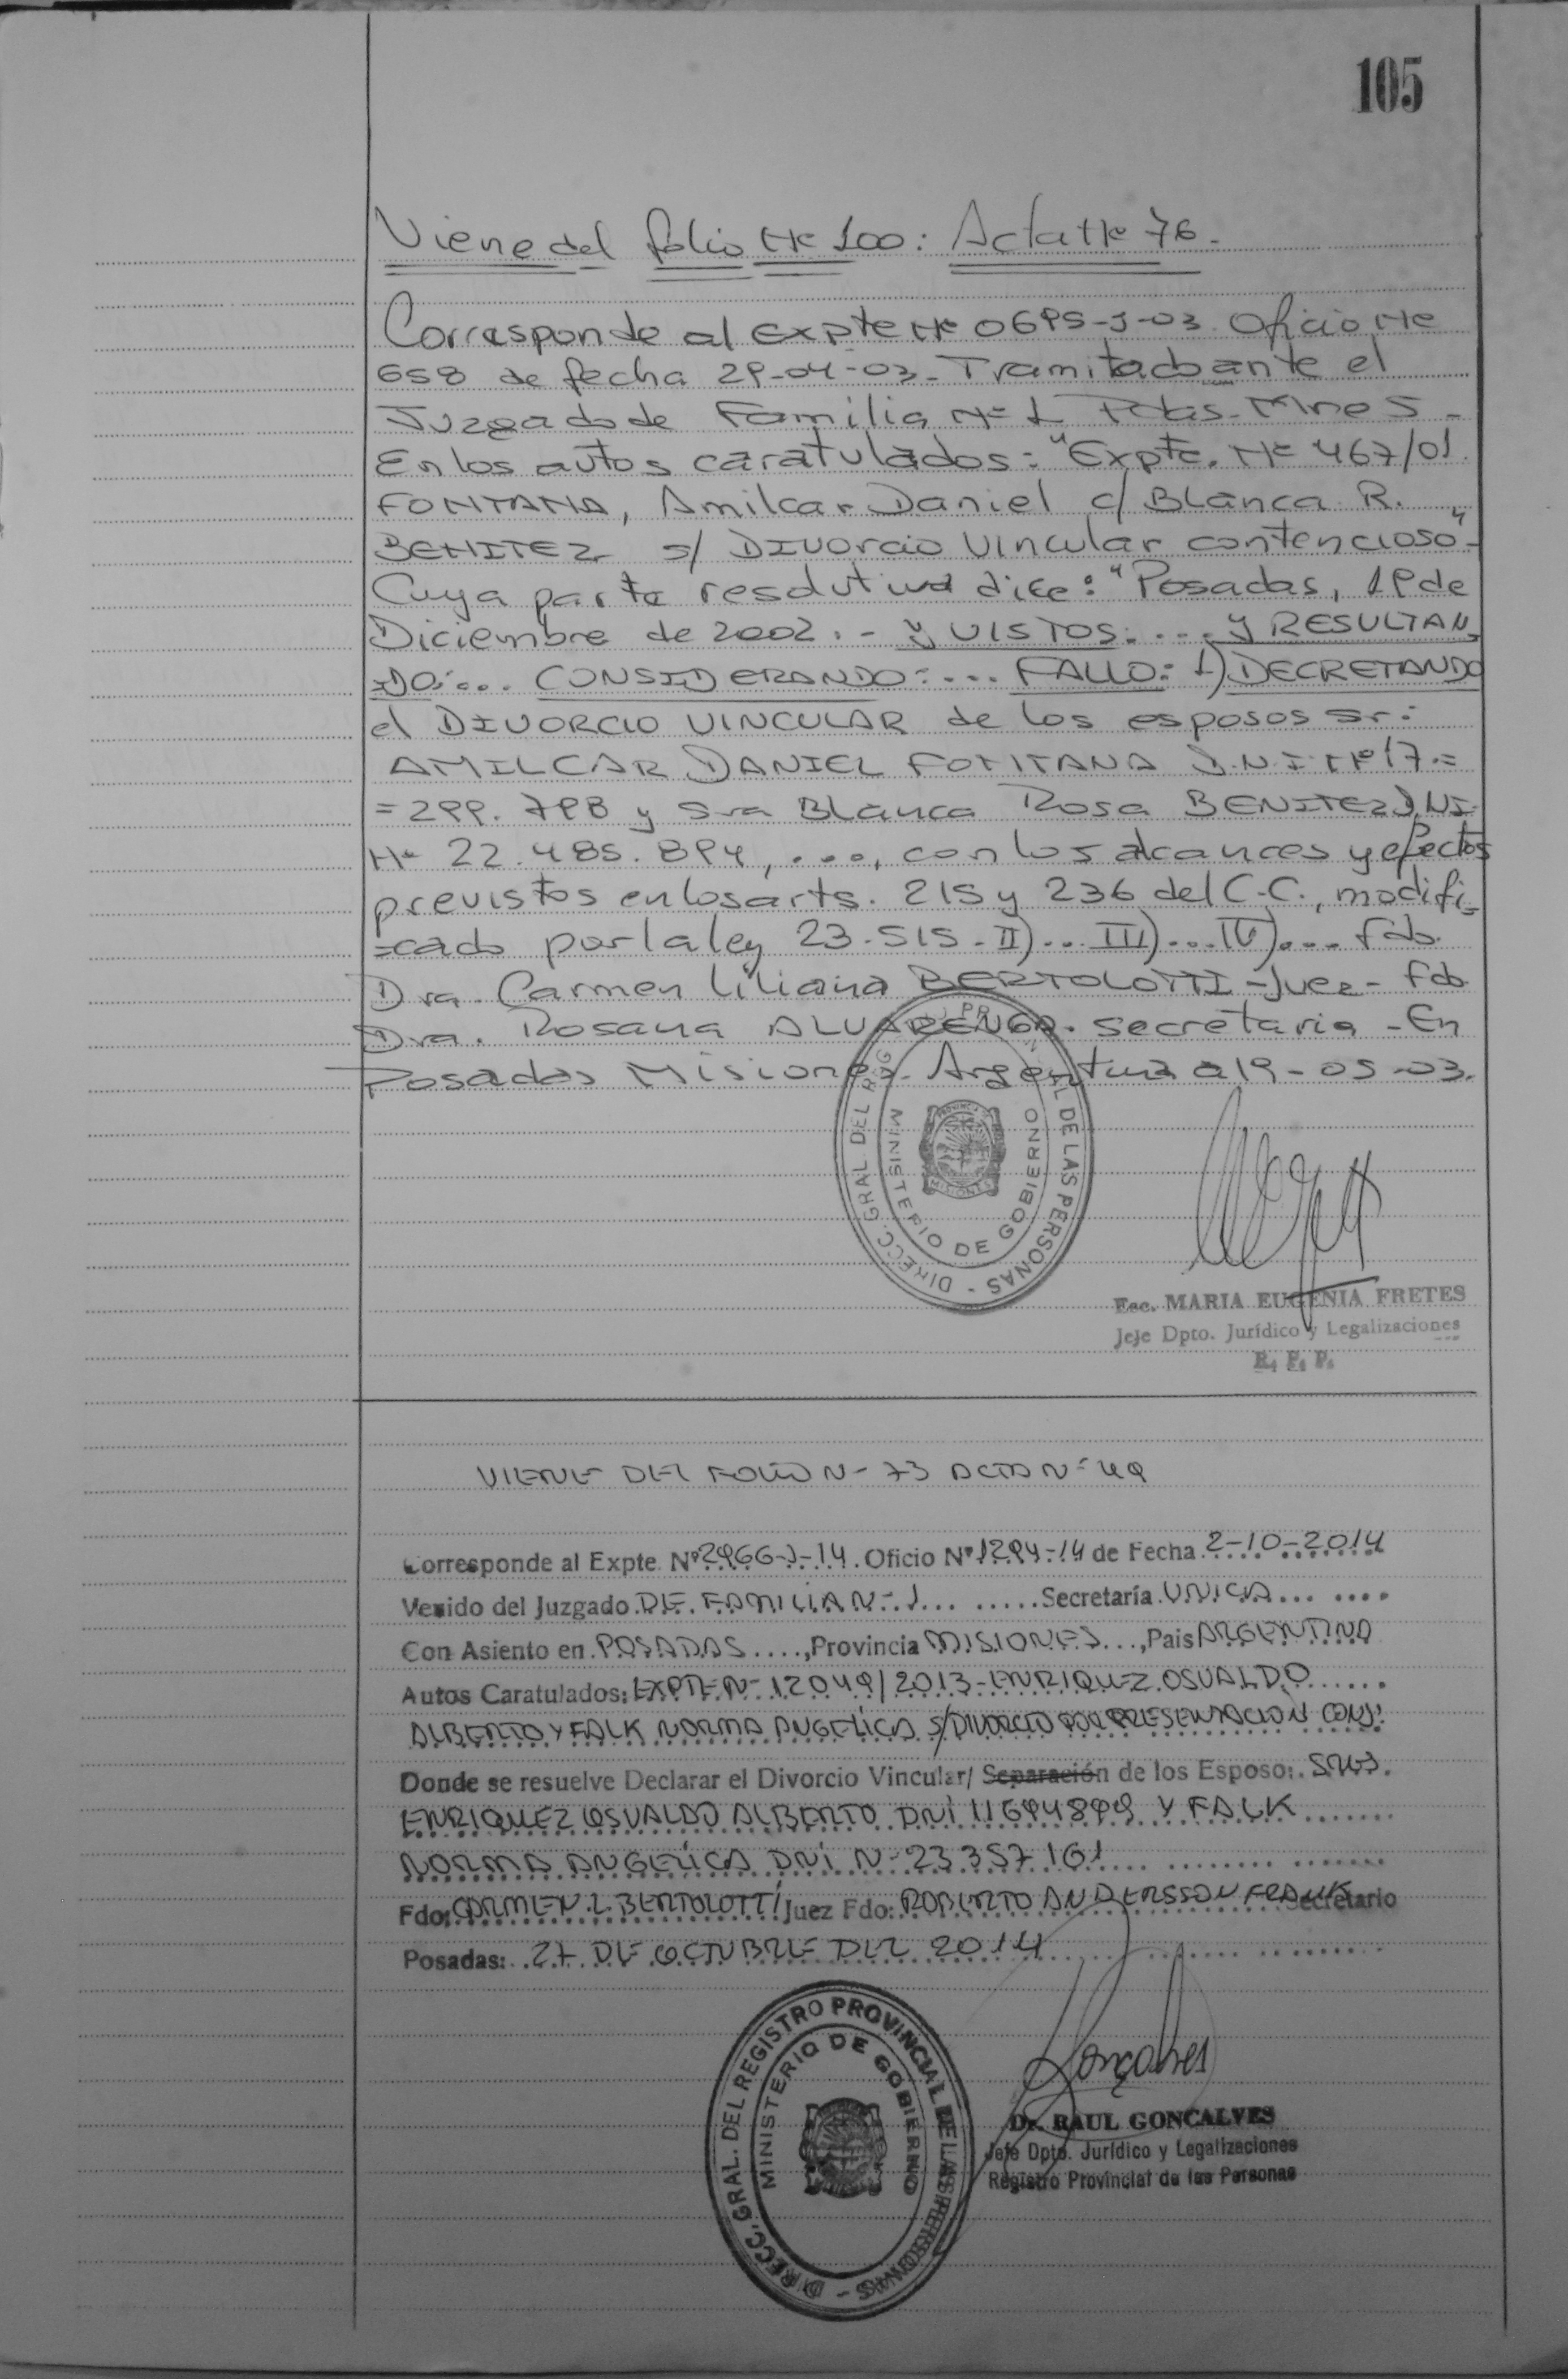 105
Viene del folio Nº 100: Acta Nº 76.
Corresponde al Expte Nº 0695-J-03 Oficio Nº
658 de fecha 29-04-03. Tramitado ante el
Juzgado de Familia Nº 1 Pdas. Mnes -
En los autos caratulados: "Expte. Nº 467/01
FONTANA, Amilcar Daniel c/ Blanca R.
BENITEZ s/ DIVORCIO VINCULAR contencioso"-
Cuya parte resolutiva dice: "Posadas, 19 de
Diciembre de 2002. - Y VISTOS: ... y RESULTAN
=DO: ... CONSIDERANDO: ... FALLO: 1) DECRETANDO
el DIVORCIO VINCULAR de los esposos Sr:
AMILCAR DANIEL FONTANA D.N.I Nº 17.=
=299.798 y Sra Blanca Rosa BENITEZ D.NI.
Nº 22.485.894, ..., con los alcances y efectos
previstos en los arts. 215 y 236 del C.C., modifi=
=cado por la ley 23.515.-II)...III)...IV).... Fdo.
Dra. Carmen Liliana BERTOLOTTI -Juez- Fdo
Dra. Rosana ALVARENGA. secretaria - En
Posadas Misiones. Argentina a 19-05-03.
DIRECC. GRAL. DEL REG PR DE LAS PERSONAS -
MINISTERIO DE GOBIERNO
PROVINCIA
MISIONES
Esc. MARIA EUGENIA FRETES
Jefe Dpto. Jurídico y Legalizaciones
R. P. P.
VIENE DEL FOLIO Nº 73 ACTA Nº 49
Corresponde al Expte. Nº 2966-J-14. Oficio Nº 1294-14 de Fecha 2-10-2014
Venido del Juzgado DE FAMILIA Nº 1... .....Secretaría UNICA... ....
Con Asiento en POSADAS ....,Provincia MISIONES ...,Pais ARGENTINA
Autos Caratulados: EXPTE Nº 12049/2013-ENRIQUEZ OSVALDO......
ALBERTO Y FALK NORMA ANGELICA S/DIVORCIO POR PRESENTACION CONJ.
Donde se resuelve Declarar el Divorcio Vincular/ Separación de los Esposo: SRES.
ENRIQUEZ OSVALDO ALBERTO DNI 11694899 Y FALK.......
NORMA ANGELICA DNI Nº 23357161... ........ .......
Fdo: CARMEN L. BERTOLOTTI Juez Fdo: ROBERTO ANDERSSON FRANK Secretario
Posadas: 27 DE OCTUBRE DEL 2014..... ....... .........
DIRECC. GRAL. DEL REGISTRO PROVINCIAL DE LAS PERSONAS -
MINISTERIO DE GOBIERNO
Gonçalves
Dr. RAUL GONCALVES
Jefe Dpto. Jurídico y Legalizaciones
Registro Provincial de las Personas